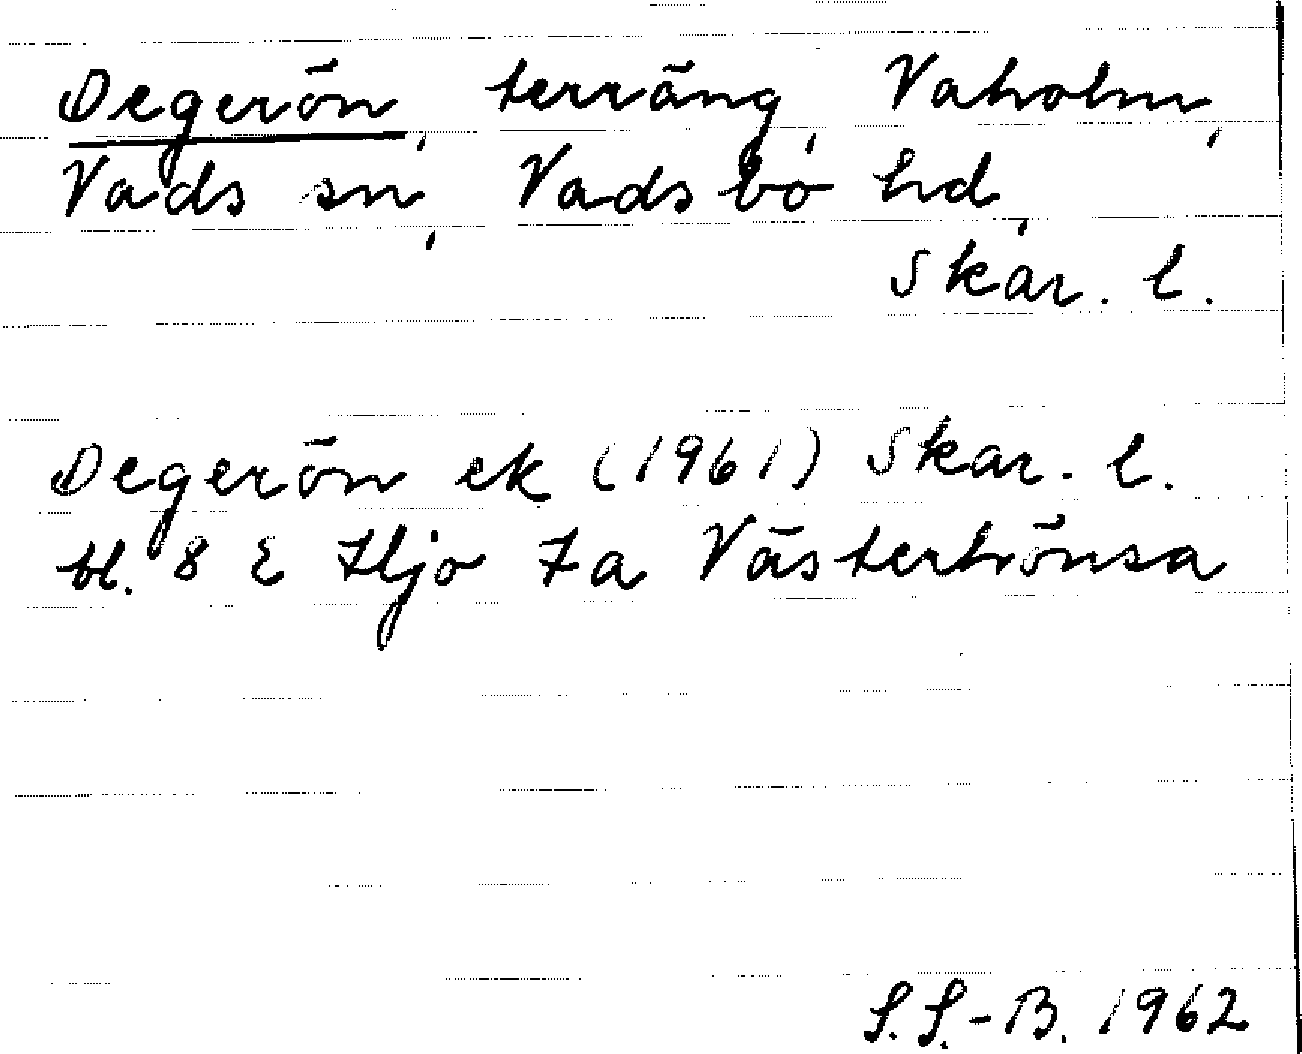 Degerön, terräng, Vaholm,
Vads sn, Vadsbo hd,
Skar. l.
Degerön ek (1961) Skar. l.
bl. 8 E Hjo 7a Västerhönsa
S. S.-B. 1962